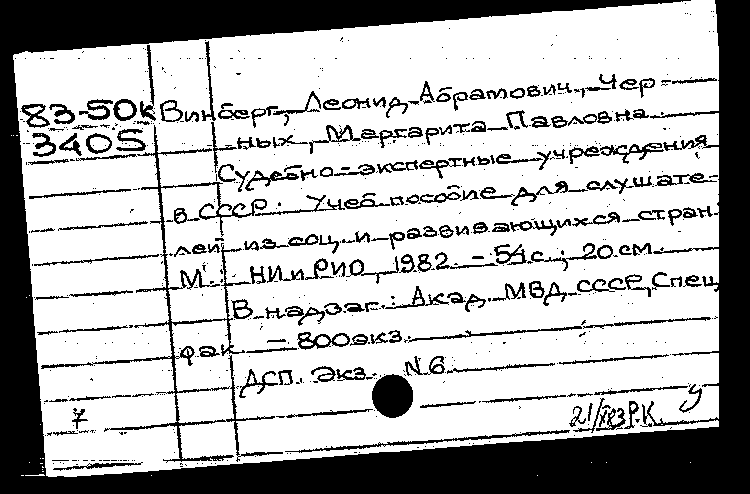 83-50к Винберг, Леонид Абрамович, Чер-
3405 ных, Маргарита Павловна.
Судебно-экспертные учреждения
в СССР: Учеб. пособие для слушате-
лей из соц. и развивающихся стран.
М.: НИ и РИО, 1982. - 54 с.; 20 см.
В надзаг.: Акад. МВД СССР, Спец.
фак. - 800 экз.
ДСП. Экз. N 6.
7
Р.К. У